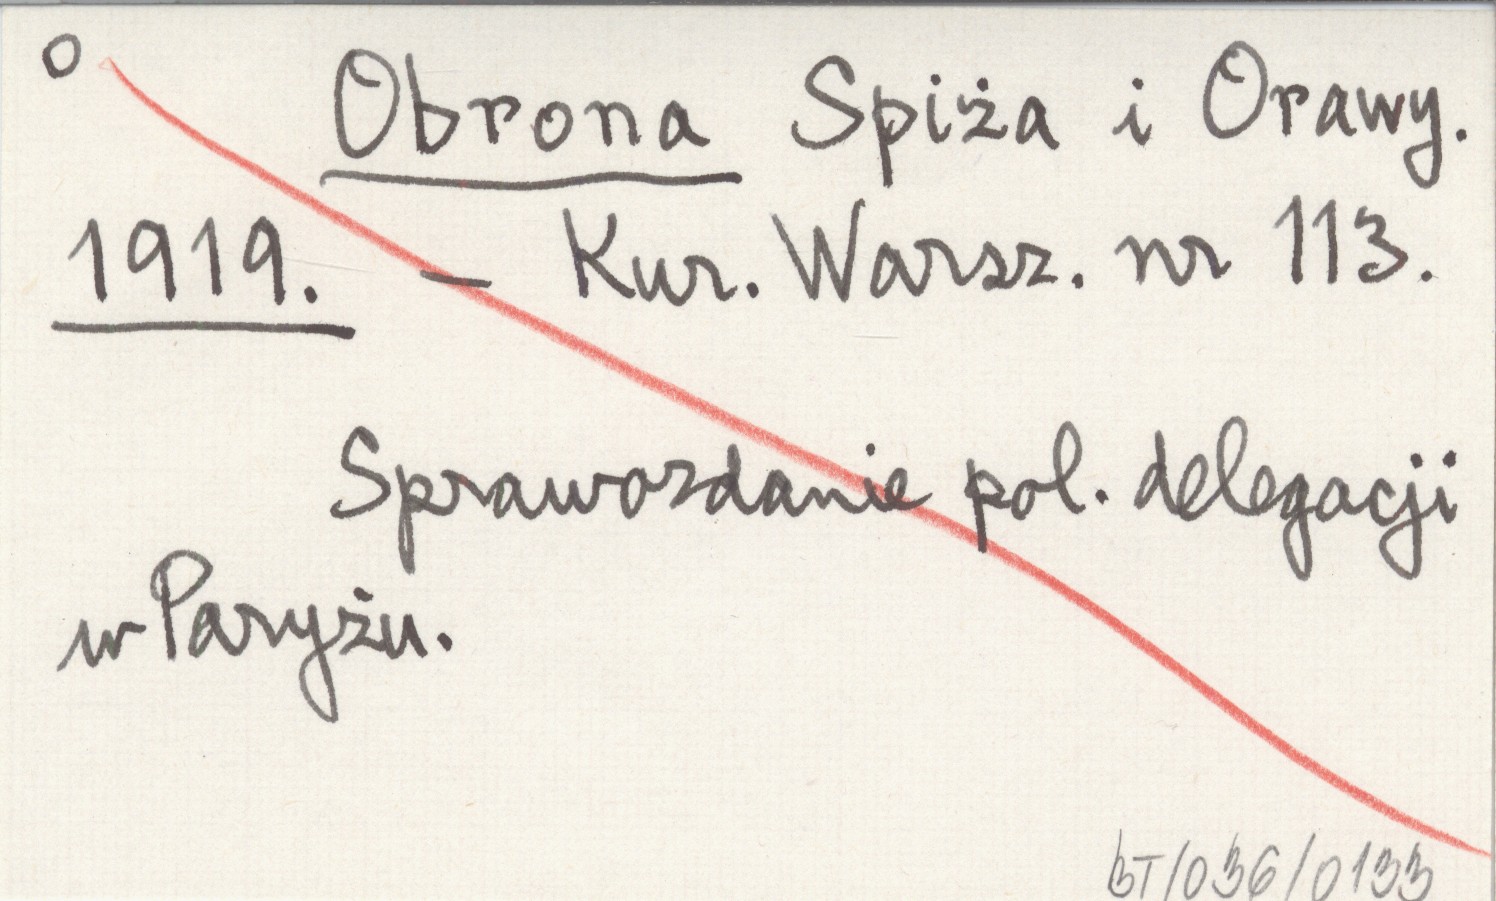 O Obrona Spiża i Orawy.
1919. — Kur. Warsz. nr 113.
Sprawozdanie pol. delegacji
w Paryżu.
BT/036/0133